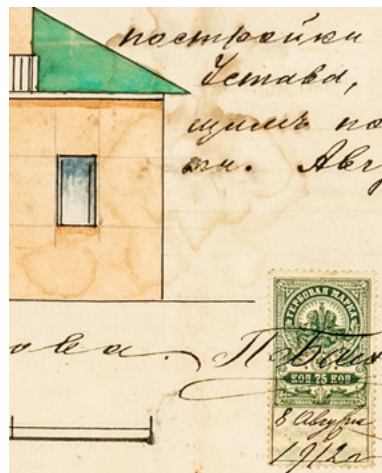 постройки
Устава,
щимъ по
ти. Авг
ова.
ГЕРБОВАЯ МАРКА
КОП 75 КОП
8 Августа
1912 г